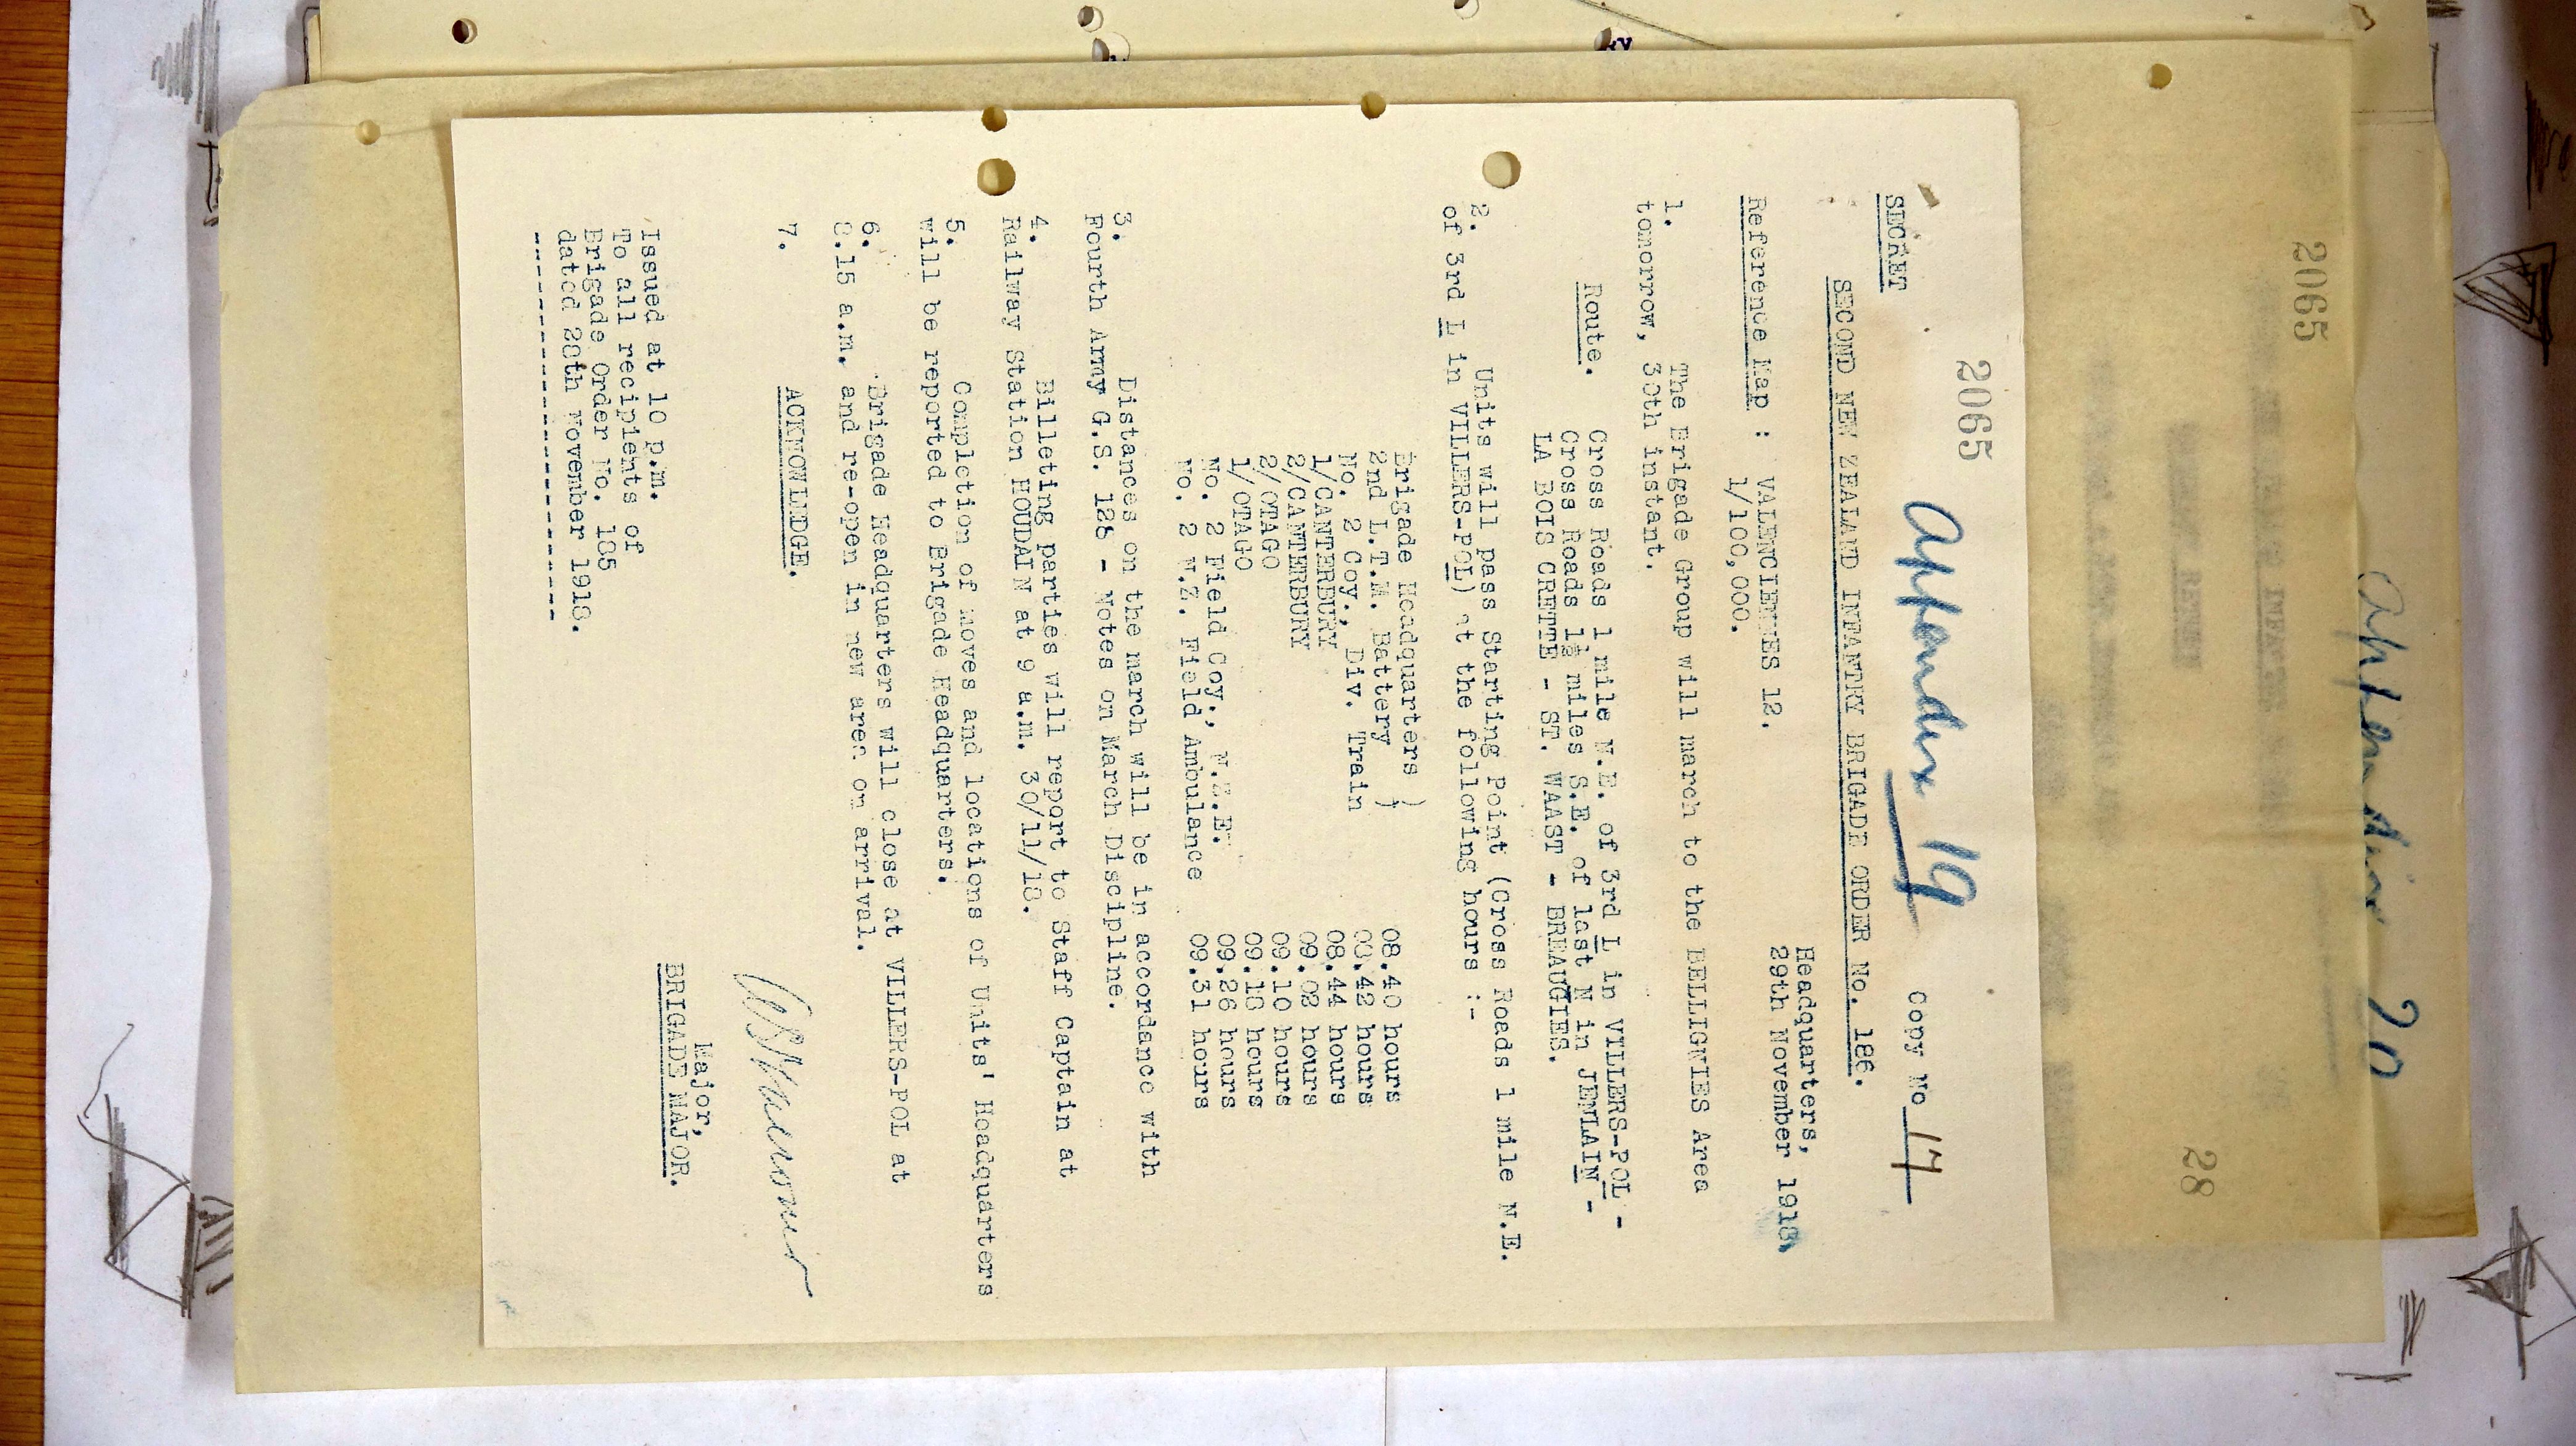 2065
Appendix 19
SECRET
Copy No 17
SECOND NEW ZEALAND INFANTRY BRIGADE ORDER No. 186.
Headquarters,
29th November 1918.
Reference Map : VALENCIENNES 12.
1/100,000.
1. The Brigade Group will march to the BELLIGNIES Area
tomorrow, 30th instant.
Route. Cross Roads 1 mile N.E. of 3rd L in VILLERS-POL -
Cross Roads 1½ miles S.E. of last N in JEMLAIN -
LA BOIS CRETTE - ST. WAAST - BREAUGIES.
2. Units will pass Starting Point (Cross Roads 1 mile N.E.
of 3rd L in VILLERS-POL) at the following hours :-
Brigade Headquarters ) 08.40 hours
2nd L.T.M. Battery ) 08.42 hours
No. 2 Coy., Div. Train 08.44 hours
1/CANTERBURY 09.02 hours
2/CANTERBURY 09.10 hours
2/OTAGO 09.18 hours
1/OTAGO 09.26 hours
No. 2 Field Coy., N.Z.E. 09.31 hours
No. 2 N.Z. Field Ambulance
3. Distances on the march will be in accordance with
Fourth Army G.S. 128 - Notes on March Discipline.
4. Billeting parties will report to Staff Captain at
Railway Station HOUDAIN at 9 a.m. 30/11/18.
5. Completion of moves and locations of Units' Headquarters
will be reported to Brigade Headquarters.
6. Brigade Headquarters will close at VILLERS-POL at
8.15 a.m. and re-open in new area on arrival.
7. ACKNOWLEDGE.
Major,
BRIGADE MAJOR.
Issued at 10 p.m.
To all recipients of
Brigade Order No. 185
dated 28th November 1918.
2065
Appendix 20
28